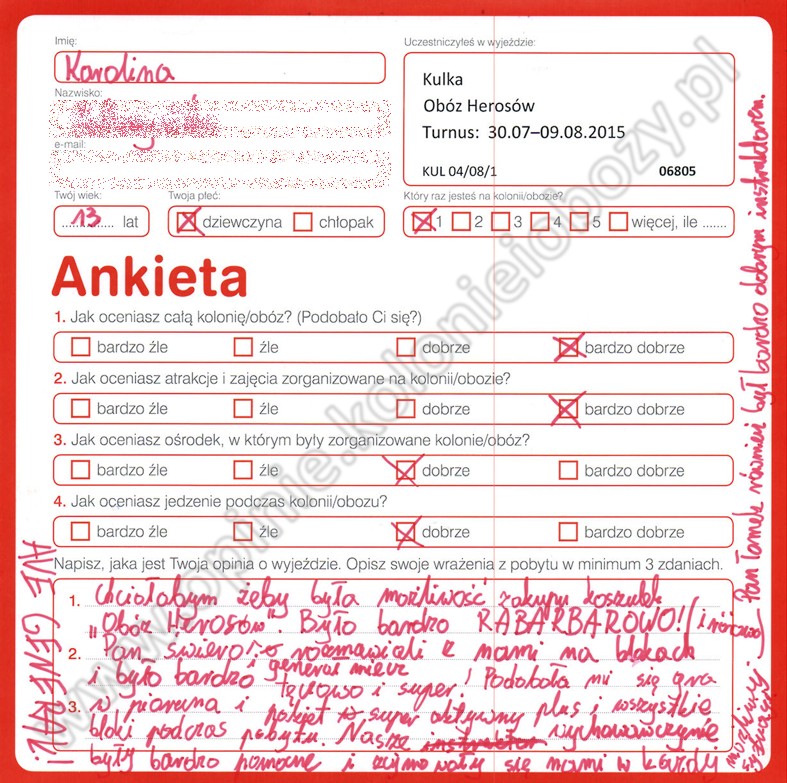 Imię:
Karolina
Nazwisko:
e-mail:
Twój wiek:
13 lat
Twoja płeć:
dziewczyna chłopak
Uczestniczyłeś w wyjeździe:
Kulka
Obóz Herosów
Turnus: 30.07–09.08.2015
KUL 04/08/1 06805
Który raz jesteś na kolonii/obozie?
1 2 3 4 5 więcej, ile .......
Ankieta
1. Jak oceniasz całą kolonię/obóz? (Podobało Ci się?)
bardzo źle źle dobrze bardzo dobrze
2. Jak oceniasz atrakcje i zajęcia zorganizowane na kolonii/obozie?
bardzo źle źle dobrze bardzo dobrze
3. Jak oceniasz ośrodek, w którym były zorganizowane kolonie/obóz?
bardzo źle źle dobrze bardzo dobrze
4. Jak oceniasz jedzenie podczas kolonii/obozu?
bardzo źle źle dobrze bardzo dobrze
Napisz, jaka jest Twoja opinia o wyjeździe. Opisz swoje wrażenia z pobytu w minimum 3 zdaniach.
1. Chciałabym żeby była możliwość zakupu koszulek
"Obóz Herosów". Było bardzo RABARBAROWO! / i różowo
2. Pan świero rozmawiali z nami na blokach
i generał miecz
i było bardzo tęczowo i super! Podobała mi się gra
3. w pioruna i super aktywny plus i wszystkie
bloki podczas pobytu. Nasze instruktor wychowawczynie
były bardzo pomocne i zajmowały się nami w każdy
możliwy sytuacji
Pan Tomek również był bardzo dobrym instruktorem.
AVE GENERAL!
www.opinie.kolonieiobozy.pl